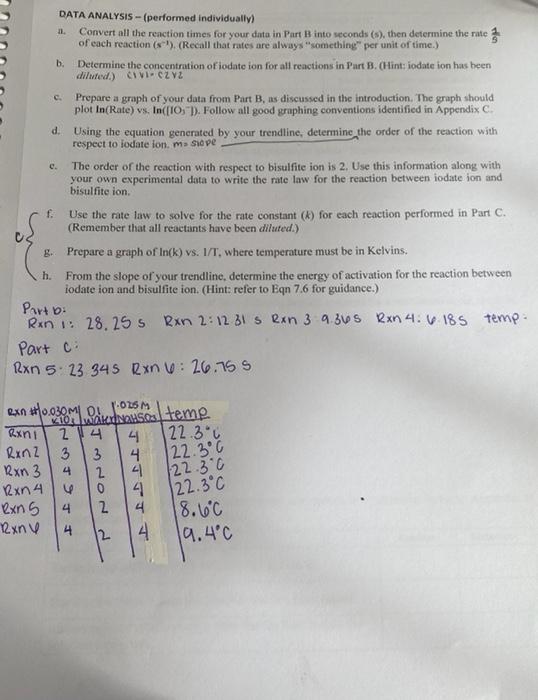 DATA ANALYSIS – (performed individually)
a. Convert all the reaction times for your data in Part B into seconds (s), then determine the rate 1/s
of each reaction (s⁻¹). (Recall that rates are always "something" per unit of time.)
b. Determine the concentration of iodate ion for all reactions in Part B. (Hint: iodate ion has been
diluted.) C1V1=C2V2
c. Prepare a graph of your data from Part B, as discussed in the introduction. The graph should
plot ln(Rate) vs. ln([IO₃⁻]). Follow all good graphing conventions identified in Appendix C.
d. Using the equation generated by your trendline, determine the order of the reaction with
respect to iodate ion. m= slope
e. The order of the reaction with respect to bisulfite ion is 2. Use this information along with
your own experimental data to write the rate law for the reaction between iodate ion and
bisulfite ion.
f. Use the rate law to solve for the rate constant (k) for each reaction performed in Part C.
(Remember that all reactants have been diluted.)
C
g. Prepare a graph of ln(k) vs. 1/T, where temperature must be in Kelvins.
h. From the slope of your trendline, determine the energy of activation for the reaction between
iodate ion and bisulfite ion. (Hint: refer to Eqn 7.6 for guidance.)
Part b:
Rxn 1: 28.25 s Rxn 2: 12.31 s Rxn 3: 9.36s Rxn 4: 6.18s temp:
Part C:
Rxn 5: 23.34s Rxn 6: 26.75 s
Rxn # 0.030M KIO₃ DI water .025M NaHSO₃ temp
Rxn1 2 4 4 22.3°C
Rxn2 3 3 4 22.3°C
Rxn 3 4 2 4 22.3°C
Rxn4 6 0 4 22.3°C
Rxn5 4 2 4 8.6°C
Rxn6 4 2 4 9.4°C